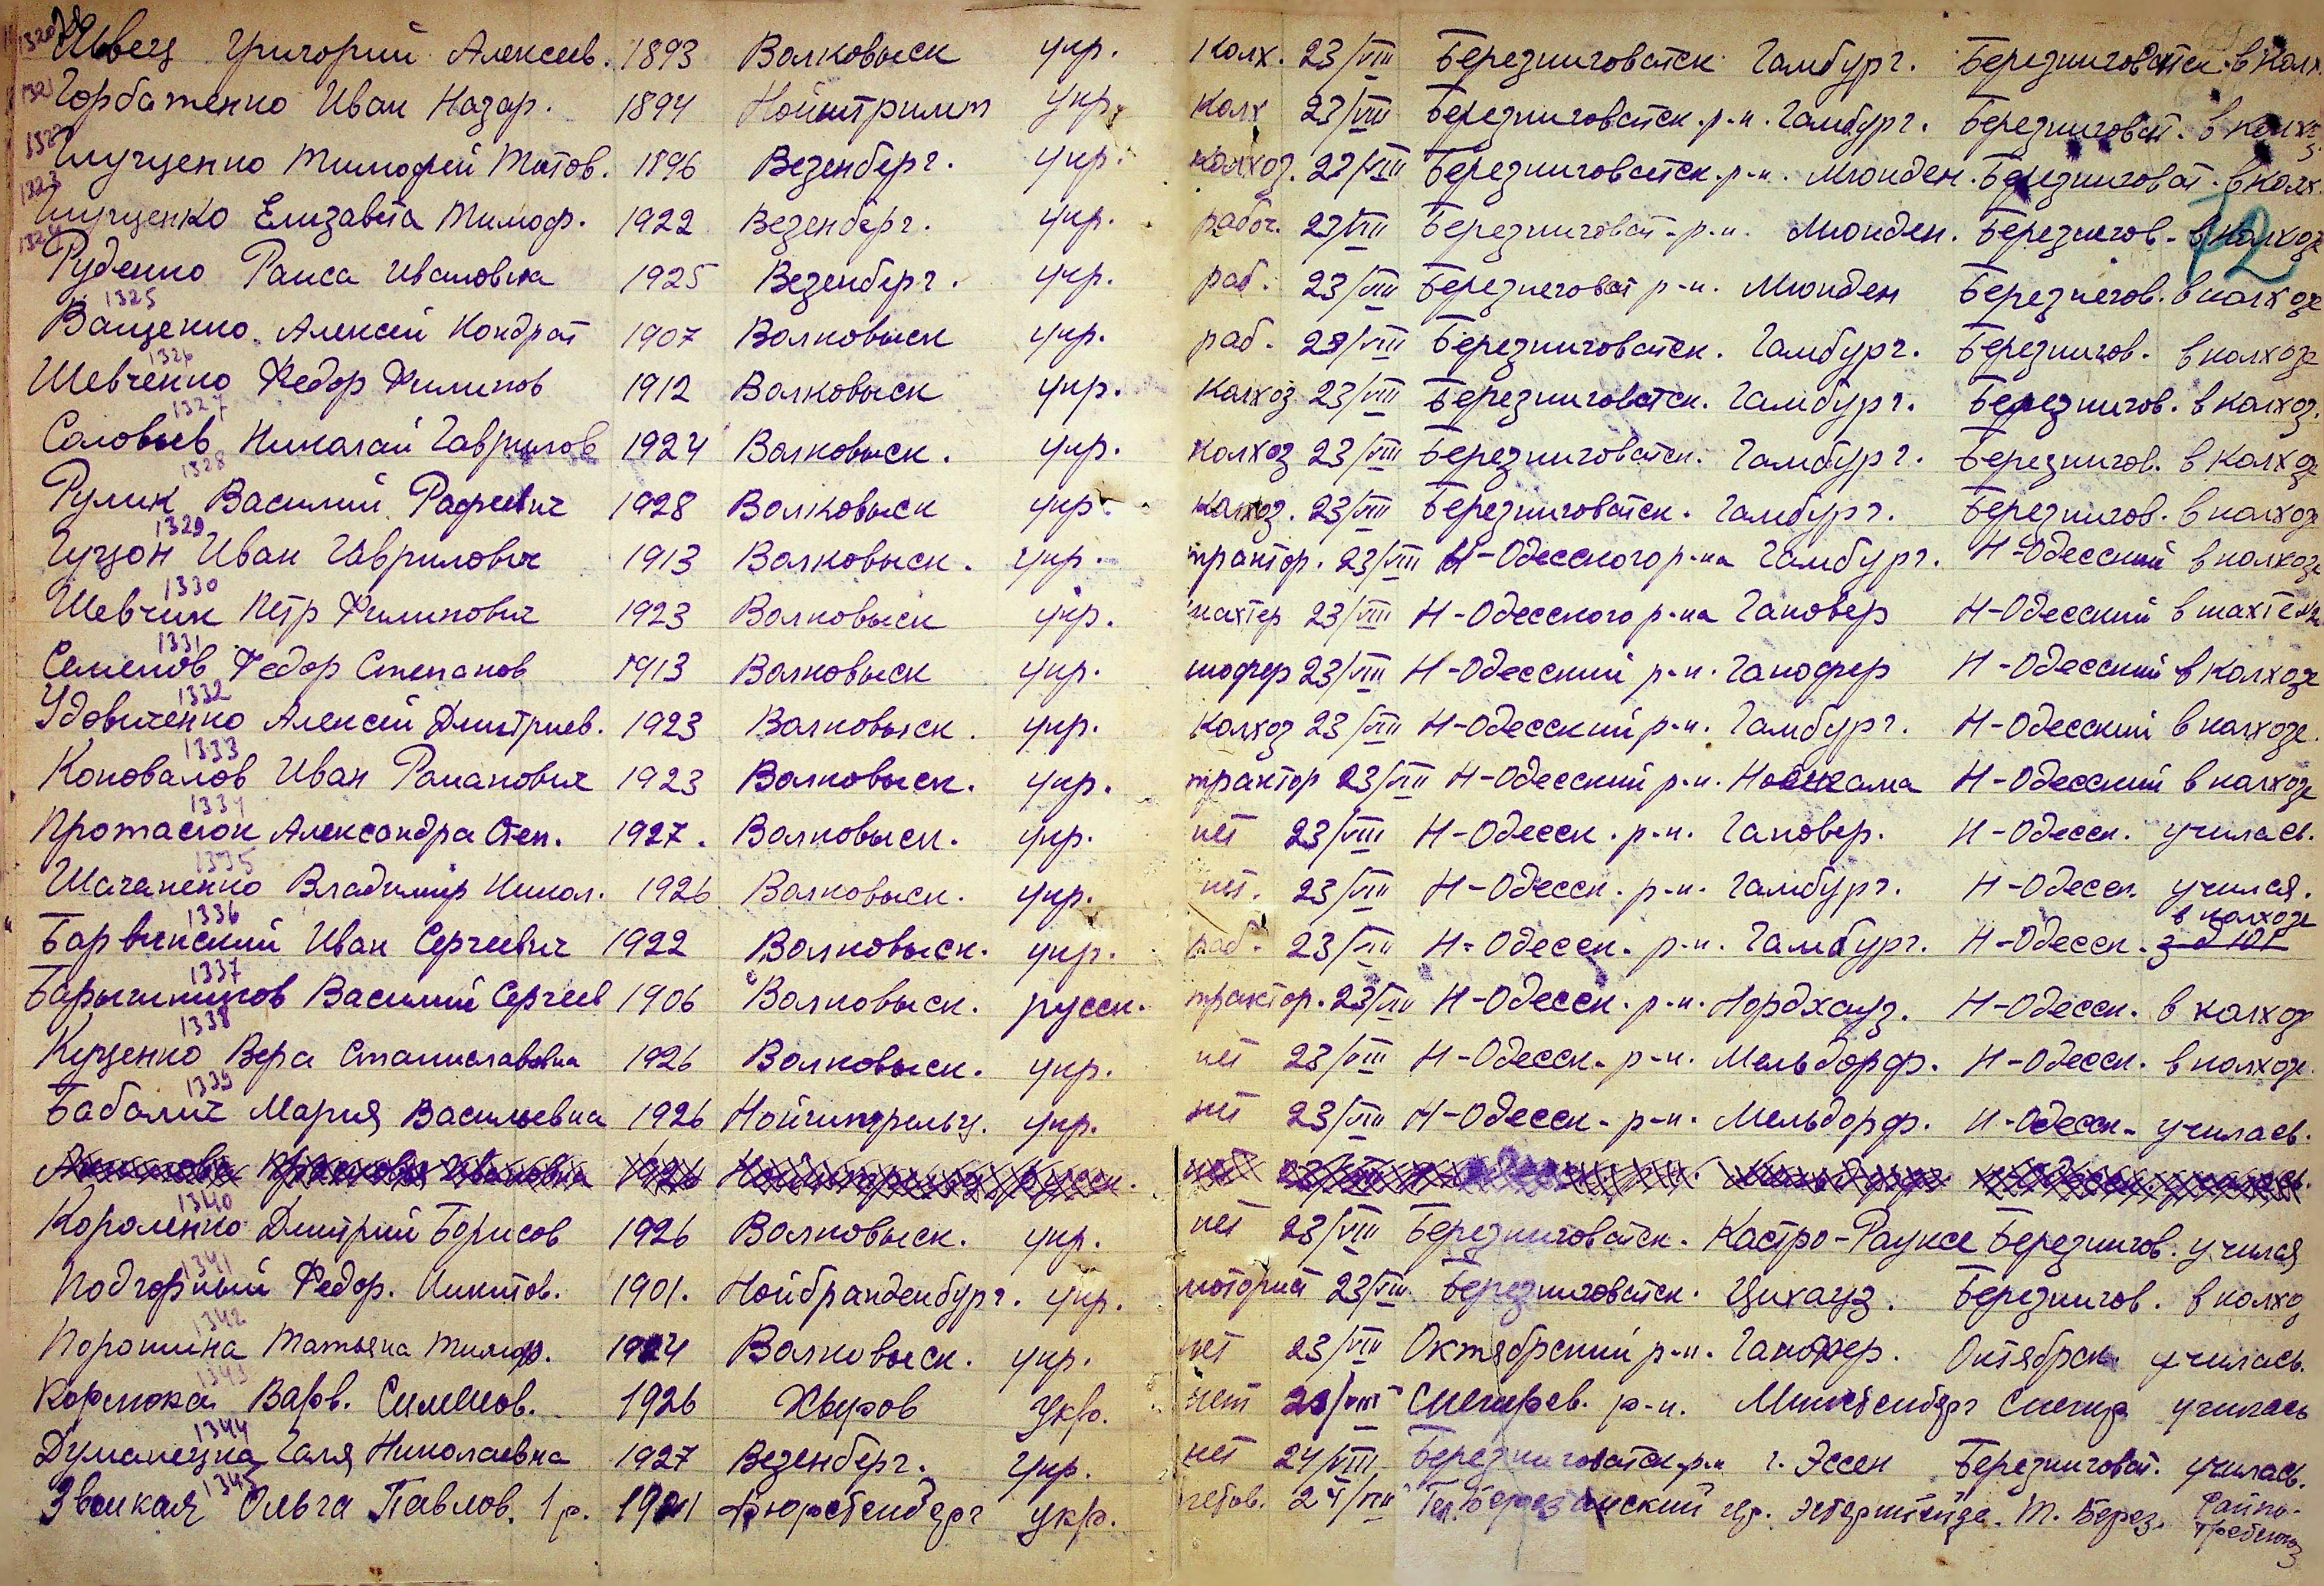 1320 Швец Григорий Алексеев. 1893 Волковыск укр. колх. 23/VIII Березниговатск Гамбург. Березниговатск в колх
1321 Горбатенко Иван Назар. 1894 укр. колх 23/VIII Березниговатск. р-н. Гамбург. Березниговат. в колхоз
1322 Глущенко Тимофей Титов. 1896 Везенберг. укр. колхоз. 23/VIII Березниговатск. р-н. Мюнден. Березниговат. в колх.
1323 Глущенко Елизавета Тимоф. 1922 Везенберг. укр. рабоч. 23/VIII Березниговат-р-н. Мюнден. Березнегов. в колхозе
1324 Руденко Раиса Ивановна 1925 Везенберг. укр. раб. 23/VIII Березнеговат р-н. Мюнден Березнегов. в колхозе
1325 Ващенко Алексей Кондрат 1907 Волковыск укр. раб. 23/VIII Березниговатск. Гамбург. Березнигов. в колхозе
1326 Шевченко Федор Филипов 1912 Волковыск укр. колхоз 23/VIII Березниговатск. Гамбург. Березнигов. в колхоз.
1327 Соловьев Николай Гаврилов 1924 Волковыск. укр. колхоз 23/VIII Березниговатск. Гамбург. Березнигов. в колхозе
1328 Рулик Василий 1928 Волковыск укр. колхоз. 23/VIII Березниговатск. Гамбург. Березнигов. в колхозе
1329 Гуцон Иван Гаврилович 1913 Волковыск. укр. трактор. 23/VIII Н-Одесского р-на Гамбург. Н-Одесский в колхозе
1330 Шевчик Петр Филипович 1923 Волковыск укр. шахтер 23/VIII Н-Одесского р-на Гановер Н-Одесский в шахте
1331 Семенов Федор Степанов 1913 Волковыск укр. шофер 23/VIII Н-Одесский р-н. Ганофер Н-Одесский в колхозе
1332 Удовиченко Алексей Дмитриев. 1923 Волковыск. укр. колхоз 23/VIII Н-Одесский р-н. Гамбург. Н-Одесский в колхозе.
1333 Коновалов Иван Романович 1923 Волковыск. укр. трактор 23/VIII Н-Одесский р-н. Н-Одесский в колхозе
1334 Протасюк Александра Степ. 1927. Волковыск. укр. нет 23/VIII Н-Одесск. р-н. Гановер. Н-Одесск. училась.
1335 Владимир Никол. 1926 Волковыск. укр. нет. 23/VIII Н-Одесск. р-н. Гамбург. Н-Одесск. учился.
1336 Барвинский Иван Сергеевич 1922 Волковыск. укр. раб. 23/VIII Н-Одесск. р-н. Гамбург. Н-Одесск. в колхозе
1337 Барышников Василий Сергеев 1906 Волковыск. русск. трактор. 23/VIII Н-Одесск. р-н. Нордхауз. Н-Одесск. в колхоз
1338 Куценко Вера Станиславовна 1926 Волковыск. укр. нет 23/VIII Н-Одесск. р-н. Мельдорф. Н-Одесск. в колхозе.
1339 Бабалич Мария Васильевна 1926 укр. нет 23/VIII Н-Одесск. р-н. Мельдорф. Н-Одесск. училась.
1340 Короленко Дмитрий Борисов 1926 Волковыск. укр. нет 23/VIII Березниговатск. Кастро-Рауксе Березнигов. учился
1341 Подгорный Федор. Никитов. 1901. Нойбранденбург. укр. моторист 23/VIII Березниговатск. Цихауз. Березнигов. в колхоз
1342 Порошина Татьяна Тимоф. 1924 Волковыск. укр. нет 23/VIII Октябрский р-н. Ганофер. Октябрск училась.
1343 Варв. Сименов. 1926 Хыров укр. нет 23/VIII Снегирев. р-н. Снегир училась
1344 Думанецка Галя Николаевна 1927 Везенберг. укр. нет 24/VIII Березниговатск. р-н г. Эссен Березниговат. училась.
1345 Звонкая Ольга Павлов. 1 р. Фюрстенберг укр. 24/VIII Т. Берез. Райпо-
требсоюз